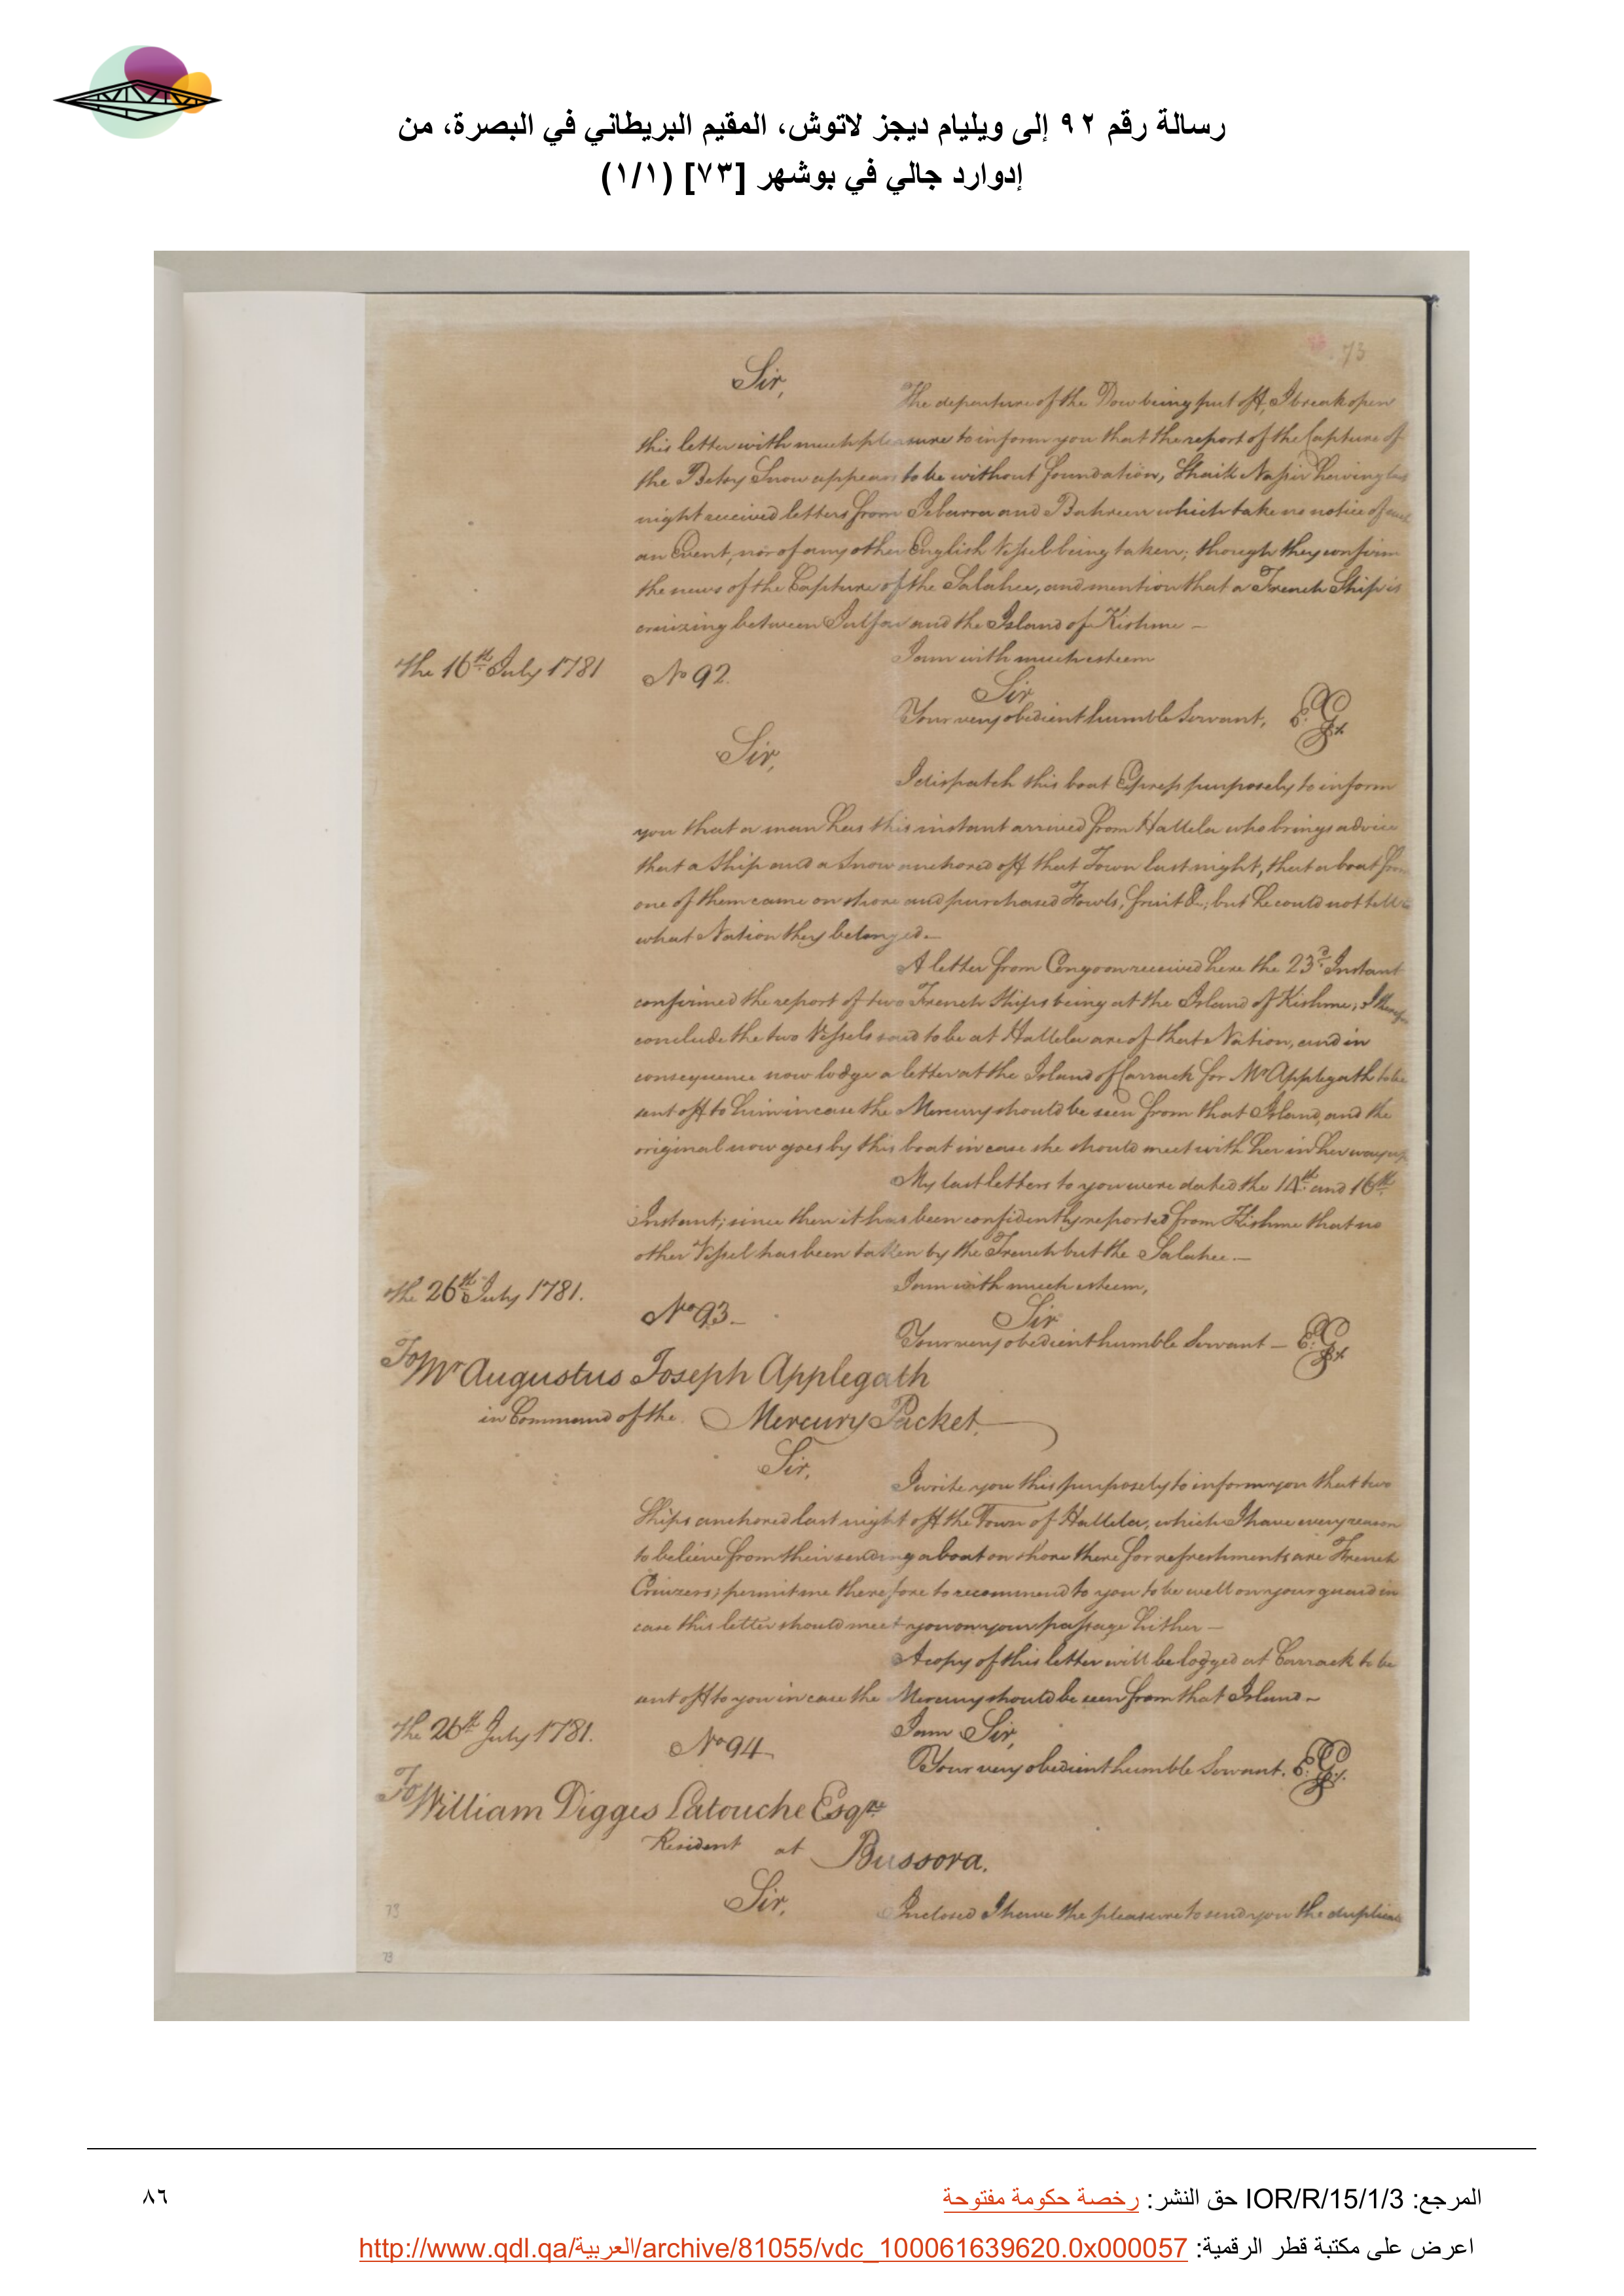 رسالة رقم ٩٢ إلى ويليام ديجز لاتوش، المقيم البريطاني في البصرة، من
إدوارد جالي في بوشهر [٧٣] (١/١)
73
Sir,
The departure of the Dow being put off, I break open
this letter with much pleasure to inform you that the report of the Capture of
the Betsy Snow appears to be without foundation, Shaik Nassir having last
night received letters from Zebarra and Bahreen which take no notice of such
an Event, nor of any other English Vessel being taken; though they confirm
the news of the Capture of the Salahee, and mention that a French Ship is
cruizing between Julfar and the Island of Kishme –
I am with much esteem
The 16th July 1781
No 92.
Sir
Your very obedient humble Servant, E: G
Sir,
I dispatch this boat Express purposely to inform
you that a man has this instant arrived from Hallela who brings advice
that a Ship and a Snow anchored off that Town last night, that a boat from
one of them came on shore and purchased Fowls, fruit &c; but he could not tell to
what Nation they belonged.–
A letter from Congoon received here the 23d Instant
confirmed the report of two French Ships being at the Island of Kishme; I therefore
conclude the two Vessels said to be at Hallela are of that Nation, and in
consequence now lodge a letter at the Island of Carrack for Mr Applegath to be
sent off to him in case the Mercury should be seen from that Island, and the
original now goes by this boat in case she should meet with her in her way up
My last letters to you were dated the 14th and 16th
Instant; since then it has been confidently reported from Kishme that no
other Vessel has been taken by the French but the Salahee.–
I am with much esteem,
The 26th July 1781.
No 93–
Sir
Your very obedient humble Servant – E: G
To Mr Augustus Joseph Applegath
in Command of the Mercury Packet.
Sir,
I write you this purposely to inform you that two
Ships anchored last night off the Town of Hallela, which I have every reason
to believe from their sending a boat on shore there for refreshments are French
Cruizers; permit me therefore to recommend to you to be well on your guard in
case this letter should meet you on your passage hither –
A copy of this letter will be lodged at Carrack to be
sent off to you in case the Mercury should be seen from that Island –
I am Sir,
The 26th July 1781.
No 94
Your very obedient humble Servant. E: G
To William Digges Latouche Esqre
Resident at Bussora.
Sir,
Inclosed I have the pleasure to send you the duplicate
73
73
المرجع: IOR/R/15/1/3 حق النشر: رخصة حكومة مفتوحة
٨٦
اعرض على مكتبة قطر الرقمية: http://www.qdl.qa/العربية/archive/81055/vdc_100061639620.0x000057